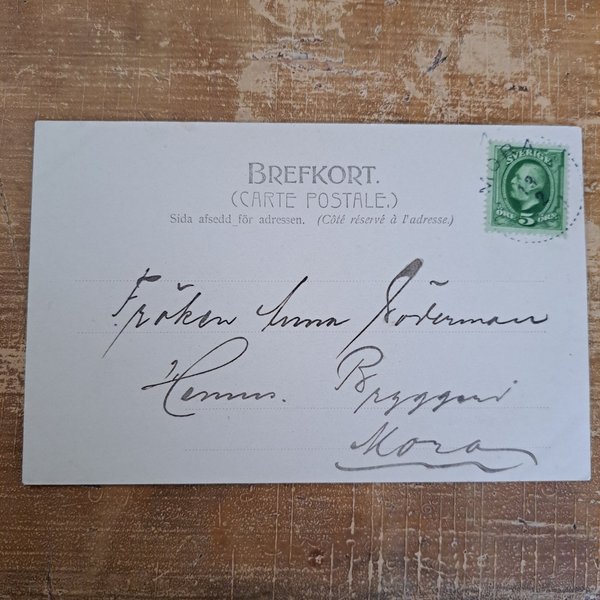 BREFKORT.
(CARTE POSTALE.)
Sida afsedd för adressen. (Côté réservé à l'adresse.)
MORA
SVERIGE
ÖRE 5 ÖRE
Fröken Anna Söderman
Hemus. Bryggeri
Mora